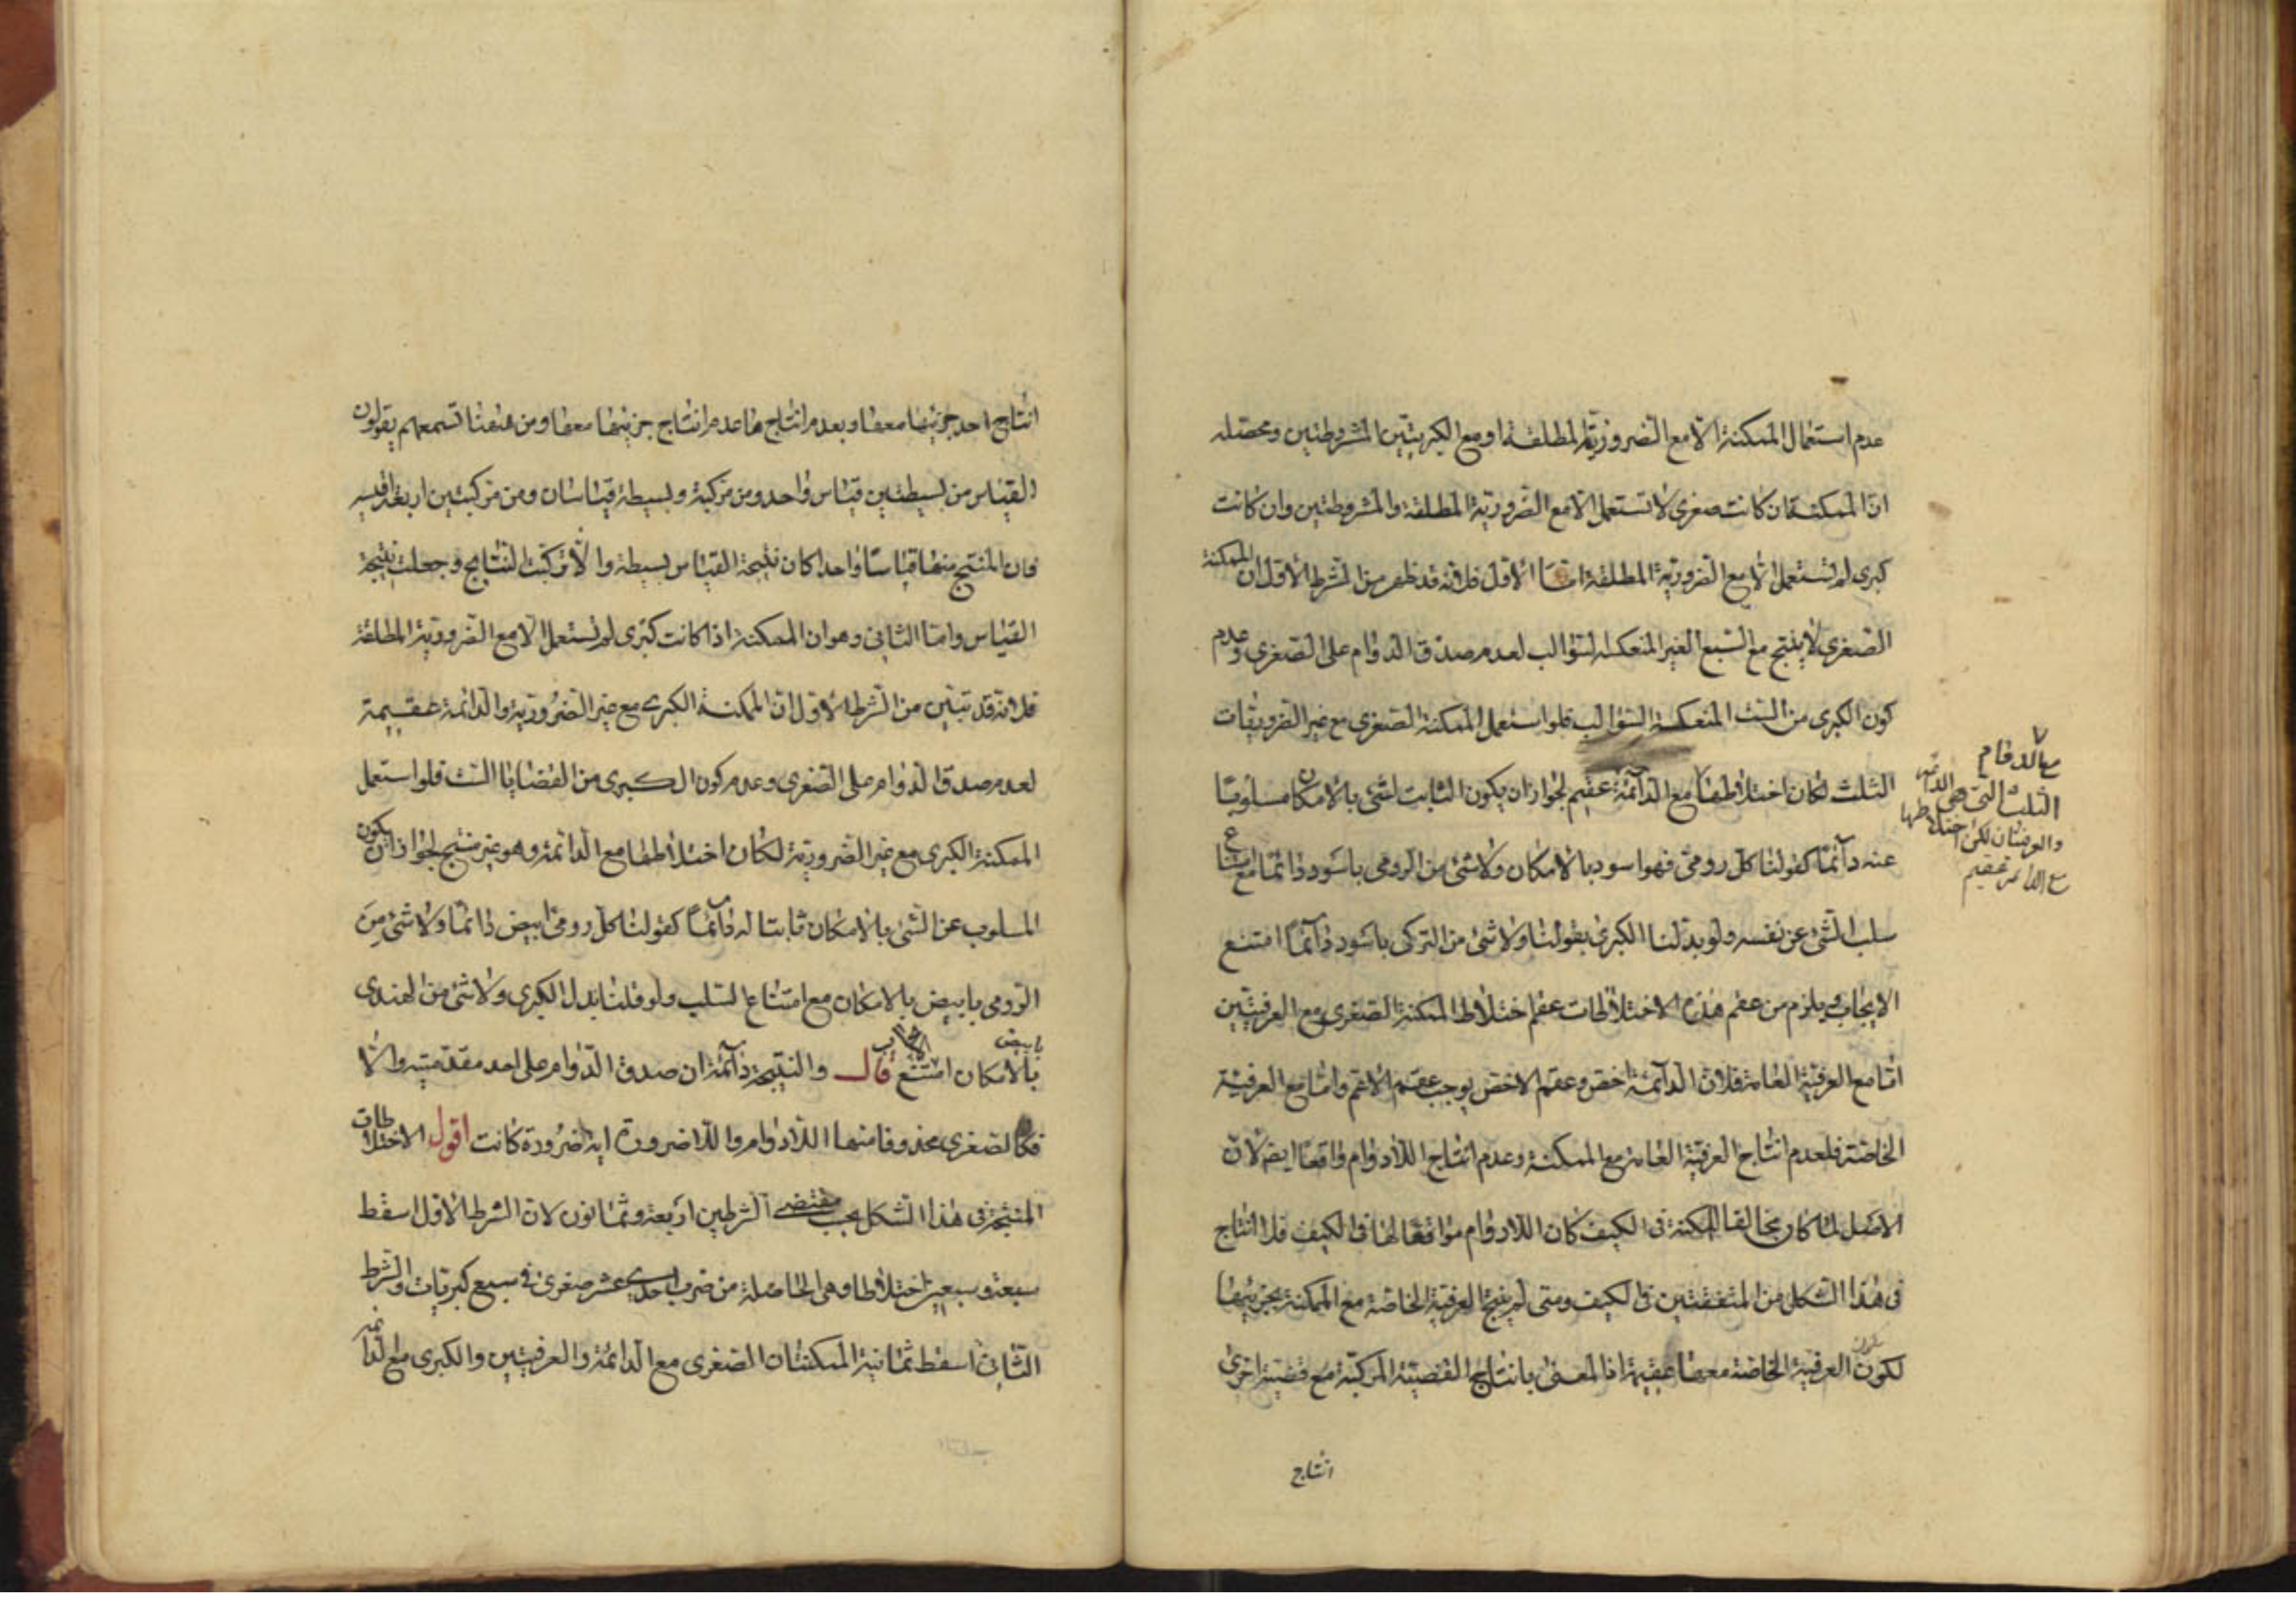 عدم استعمال الممكنة الا مع الضرورية المطلقة او مع الكبريتين المشروطتين ومحصله
ان الممكنة ان كانت صغرى لا تستعمل الا مع الضرورية المطلقة والمشروطتين وان كانت
كبرى لم تستعمل الا مع الضرورية المطلقة اما الاول فلانه قد ظهر من الشرط الاول ان الممكنة
الصغرى لا ينتج مع السبع الغير المنعكسة السوالب لعدم صدق الدوام على الصغرى وعدم
كون الكبرى من الست المنعكسة السوالب فلو استعمل الممكنة الصغرى مع غير الضروريات
الثلث لكان اختلاطها مع الدائمة عقيم لجواز ان يكون الثابت لشئ بالامكان مسلوبا
عنه دائما كقولنا كل رومى فهو اسود بالامكان ولا شئ من الرومى باسود دائما مع امتناع
سلب الشئ عن نفسه ولو بدلنا الكبرى بقولنا ولا شئ من التركى باسود دائما امتنع
الايجاب ويلزم من عقم هذه الاختلاطات عقم اختلاط الممكنة الصغرى مع العرفيتين
اما مع العرفية العامة فلان الدائمة اخص وعقم الاخص يوجب عقم الاعم واما مع العرفية
الخاصة فلعدم انتاج العرفية العامة مع الممكنة وعدم انتاج اللادوام واقعا ايضا لان
الاصل لما كان مخالفا للممكنة فى الكيف كان اللادوام موافقا لها فى الكيف فلا انتاج
فى هذا الشكل من المتفقتين فى الكيف ومتى لم ينتج العرفية الخاصة مع الممكنة بجزئيها
لكون العرفية الخاصة معها عقيمة اذ المعنى بانتاج القضية المركبة مع قضية اخرى
انتاج
مع الدوام
الثلث التى هى الدائمة
والعرفيتان لكن اختلاطها
مع الدائمة عقيم
انتاج احد جزئيها معها وبعدم انتاجها عدم انتاج جزئيها معها ومن ههنا تسمعهم يقولون
القياس من بسيطتين قياس واحد ومن مركبة وبسيطة قياسان ومن مركبتين اربعة اقيسه
فان المنتج منها قياسا واحدا كان نتيجة القياس بسيطة والا تركبت النتايج وجعلت نتيجة
القياس واما الثانى وهو ان الممكنة اذا كانت كبرى لم تستعمل الا مع الضرورية المطلقة
فلانه قد تبين من الشرط الاول ان الممكنة الكبرى مع غير الضرورية والدائمة عقيمة
لعدم صدق الدوام على الصغرى وعدم كون الكبرى من القضايا الست فلو استعمل
الممكنة الكبرى مع غير الضرورية لكان اختلاطها مع الدائمة وهو غير منتج لجواز ان يكون
المسلوب عن الشئ بالامكان ثابتا له دائما كقولنا كل رومى ابيض دائما ولا شئ من
الرومى بابيض بالامكان مع امتناع السلب ولو قلنا بدل الكبرى ولا شئ من الهندى
بابيض بالامكان امتنع الايجاب قال والنتيجة دائمة ان صدق الدوام على احد مقدمتيه والا
فكالصغرى محذوفا منها اللادوام واللاضرورة اية ضرورة كانت اقول الاختلاطات
المنتجة فى هذا الشكل بحسب مقتضى الشرطين اربعة وثمانون لان الشرط الاول اسقط
سبعة وسبعين اختلاطا وهى الحاصلة من ضرب احدى عشر صغرى فى سبع كبريات والشرط
الثانى اسقط ثمانية الممكنتان الصغرى مع الدائمة والعرفيتين والكبرى مع الدائمة